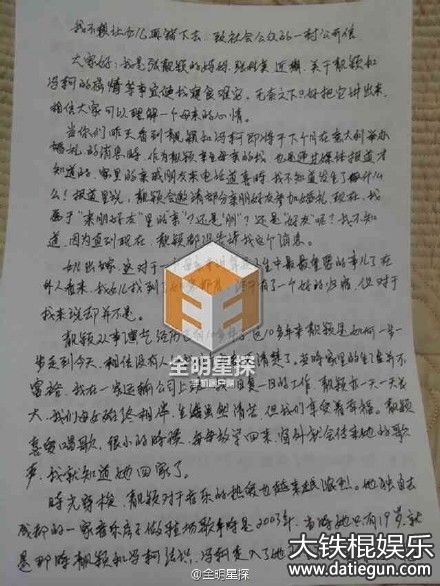 我不想让女儿再错下去, 致社会公众的一封公开信
大家好: 我是张靓颖的妈妈, 张桂英 近期, 关于靓颖和
冯柯的感情等事宜使我寝食难安, 无奈之下只好把它讲出来,
相信大家可以理解一个母亲的心情。
当你们昨天看到靓颖和冯柯即将于下个月在意大利举办
婚礼的消息时, 作为靓颖至亲的母亲的我, 也是通过媒体报道才
知道的, 家里的亲戚朋友来电话道喜时, 我不知道发生了什
么! 报道里说, 靓颖会邀请部分亲朋好友参加婚礼, 现在, 我
属于"亲朋好友"里的"亲"? 还是"朋"? 还是"好友"呢? 我不知
道, 因为直到现在, 靓颖都没告诉我这个消息。
女儿出嫁, 这对于一
生中最最重要的事儿了, 在
外人看来, 我女儿找到了
有了一个好的归宿, 但对于
我来说却并不是。
靓颖从事演艺
这10多年来靓颖是如何一步一
步走到今天, 相信没有人
清楚了。当时家里的生活并不
富裕, 我在一家运输公司上
日复一日的工作, 靓颖也一天一天长
大, 我们母女始终相伴, 生活虽然清苦, 但我们享受着幸福。靓颖
喜爱唱歌, 很小的时候, 每每放学回来, 窗外就会传来她的歌
声, 我就知道她回家了。
时光穿梭, 靓颖对于音乐的热爱也越来越浓烈。她独自去
成都的一家音乐房子做驻场歌手时是2003年, 当时她只有19岁, 就
是那时靓颖和冯柯结识, 冯柯走入了她
全明星探
手机客户端
@全明星探
大铁棍娱乐
www.datiegun.com